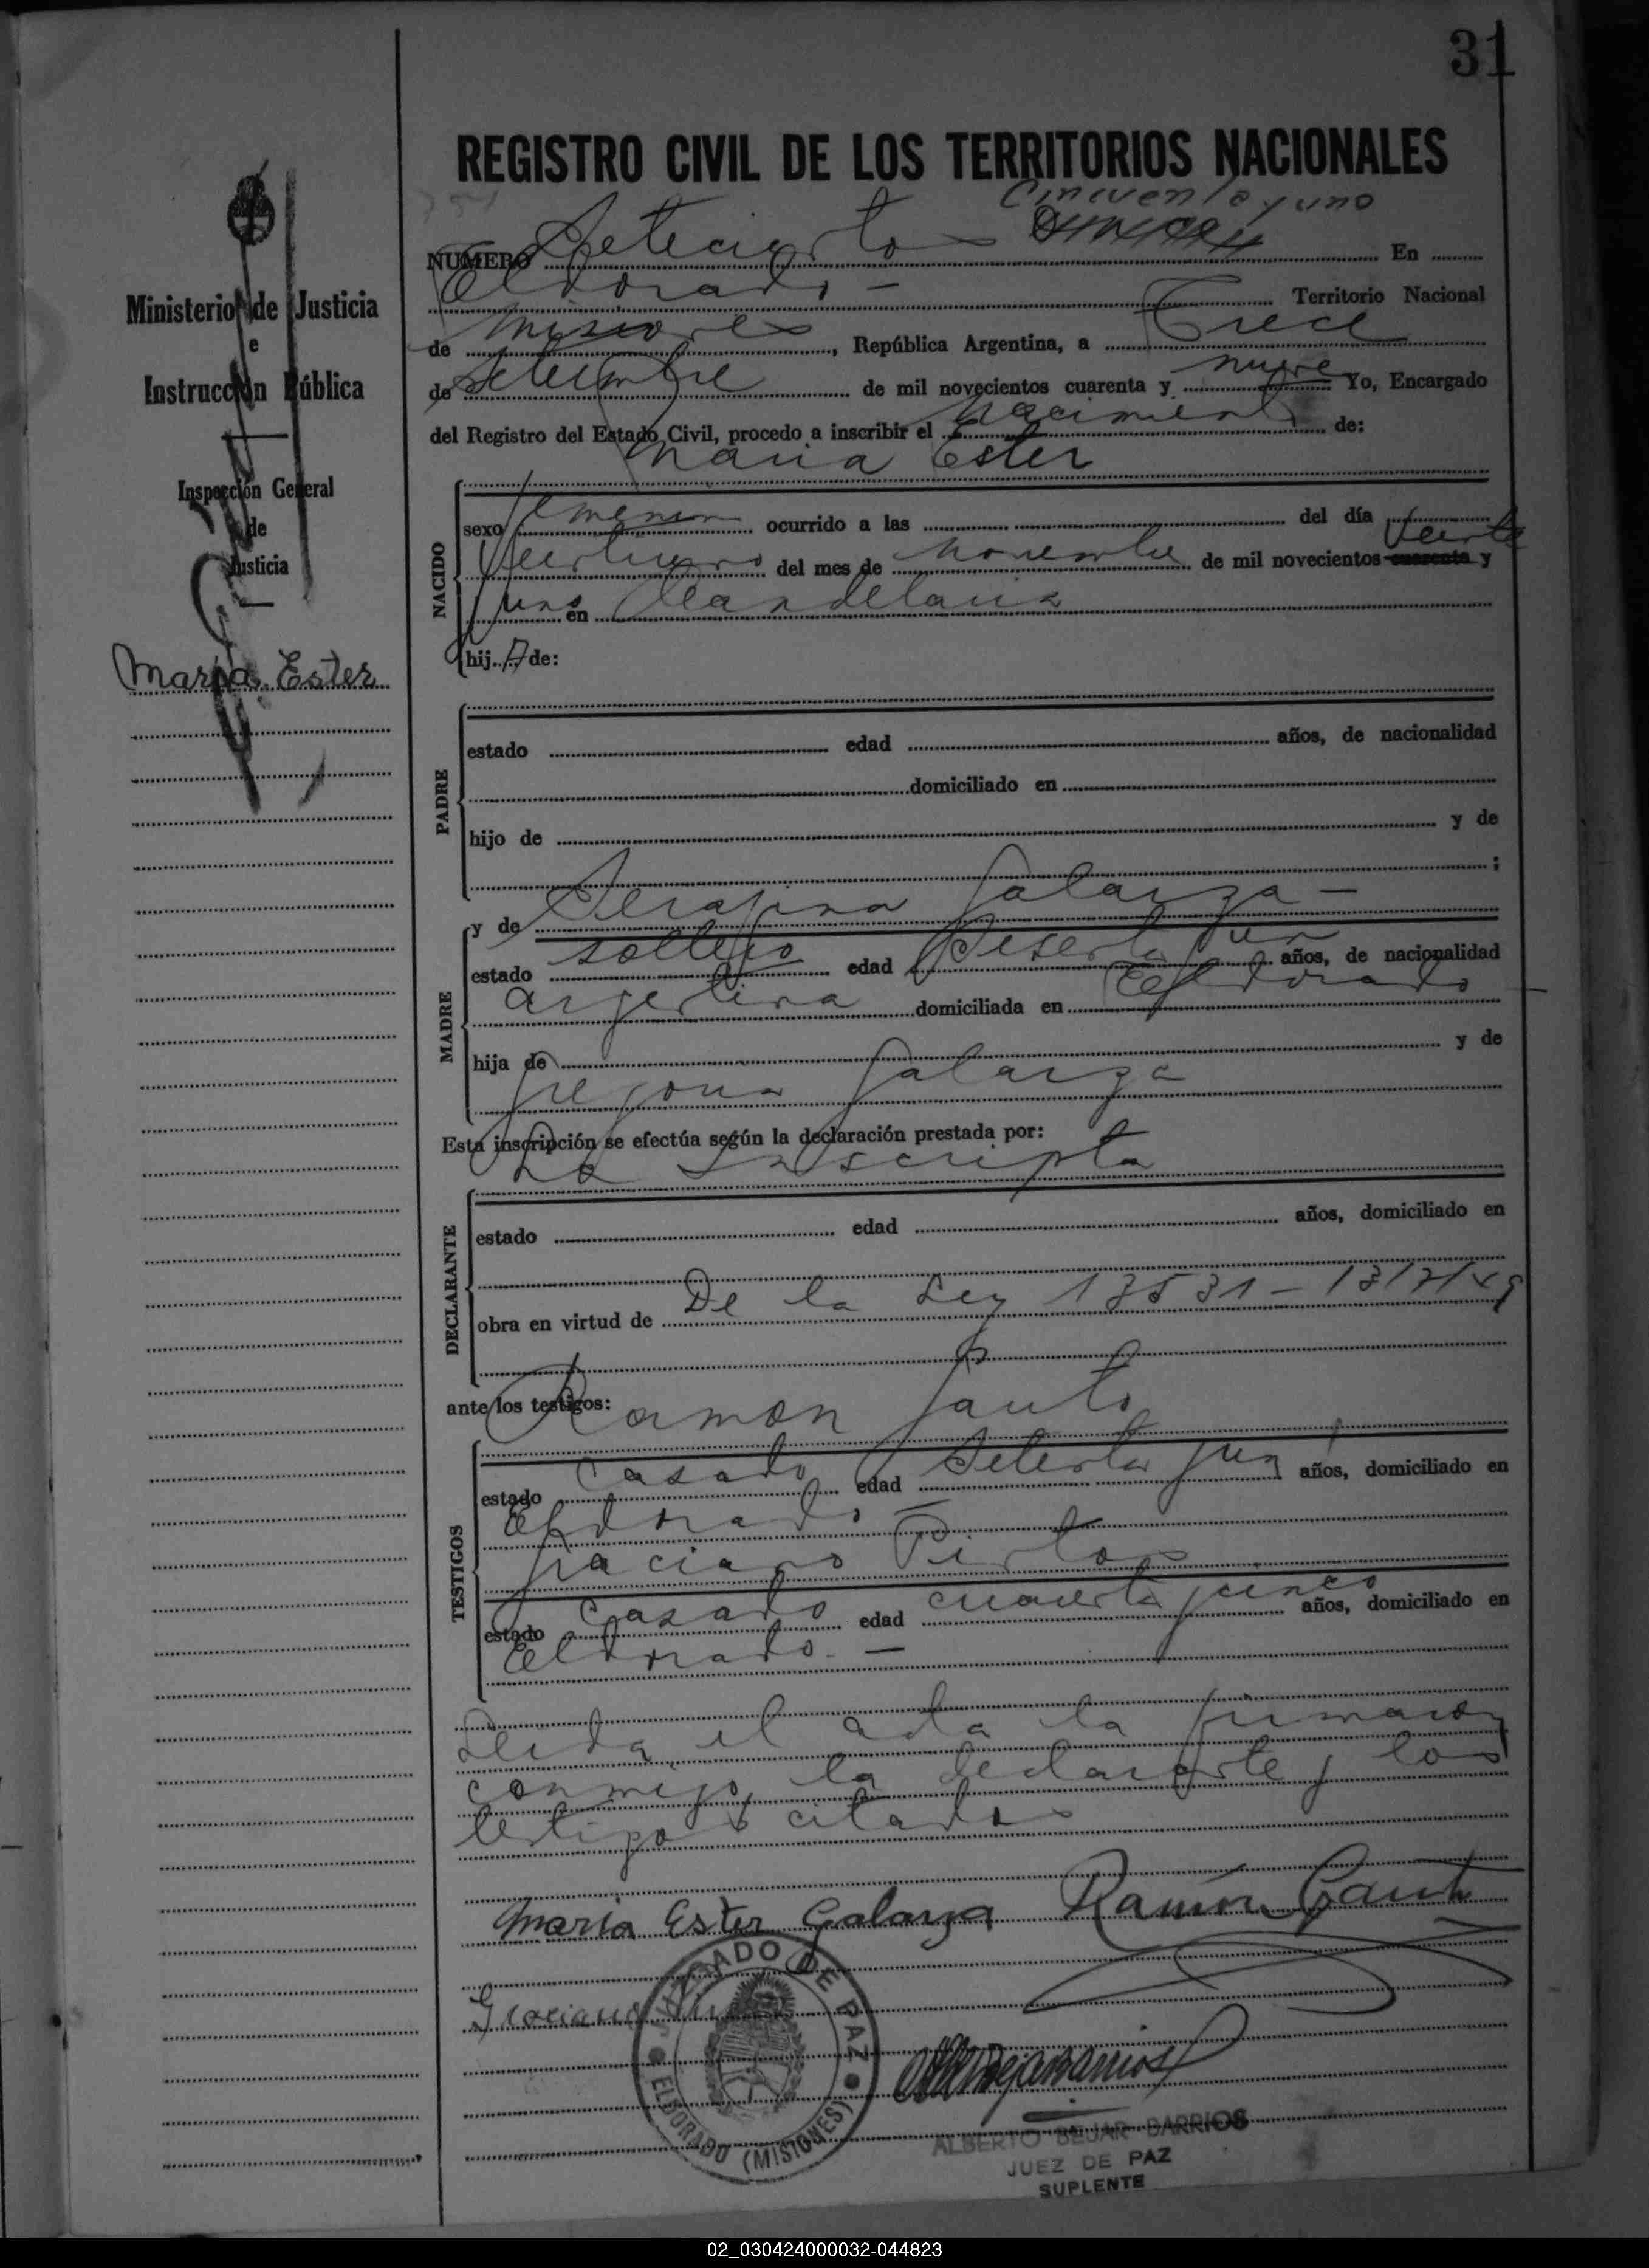 31
REGISTRO CIVIL DE LOS TERRITORIOS NACIONALES
Cincuenta y uno
NUMERO Setecientos En
Eldorado - Territorio Nacional
de Misiones, República Argentina, a Trece
de Setiembre de mil novecientos cuarenta y nueve Yo, Encargado
del Registro del Estado Civil, procedo a inscribir el nacimiento de:
Maria Ester
Ministerio de Justicia
e
Instrucción Pública
Inspección General
de
Justicia
María Ester
NACIDO
sexo femenino ocurrido a las del día
Veintiuno del mes de Noviembre de mil novecientos cuarenta y Veinte
uno en Candelaria
hija de:
PADRE
estado edad años, de nacionalidad
domiciliado en
hijo de y de
;
MADRE
y de Serafina Galarza -
estado soltera edad años, de nacionalidad
argentina domiciliada en Eldorado
hija de y de
Gregoria Galarza
Esta inscripción se efectúa según la declaración prestada por:
La Inscripta
DECLARANTE
estado edad años, domiciliado en
obra en virtud de De la Ley 13531 -
ante los testigos:
Ramon Gauto
TESTIGOS
estado casado edad Setenta y un años, domiciliado en
Eldorado -
Graciano
estado casado edad cuarenta y cinco años, domiciliado en
Eldorado. -
Leida el acta la firmaron
conmigo la declarante y los
testigos citados
Maria Ester Galarza Ramón Gauto
Graciano
JUZGADO DE PAZ
ELDORADO (MISIONES)
ALBERTO BEJAR BARRIOS
JUEZ DE PAZ
SUPLENTE
02_030424000032-044823